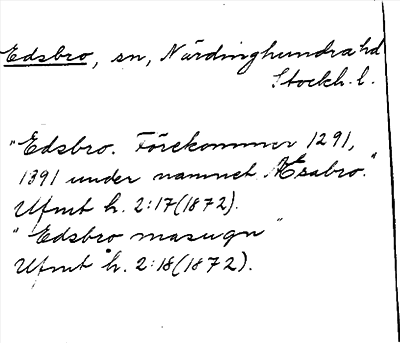 Edsbro, sn, Närdinghundra hd
Stockh. l.
"Edsbro. Förekommer 1291,
1391 under namnet Æsabro."
Ufmt h. 2:17(1872).
"Edsbro masugn"
Ufmt h. 2:18(1872).